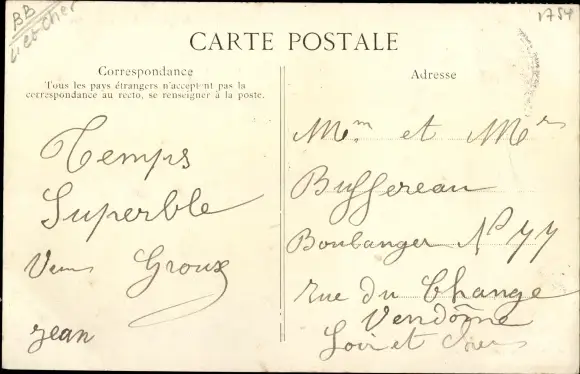 BB
L. et Cher
1754
CARTE POSTALE
Correspondance
Tous les pays étrangers n'acceptent pas la
correspondance au recto, se renseigner à la poste.
Temps
Superble
Groux
Jean
Adresse
Mm et Mrs
Buffereau
Boulanger No 77
rue du Change
Vendôme
Loir et Cher